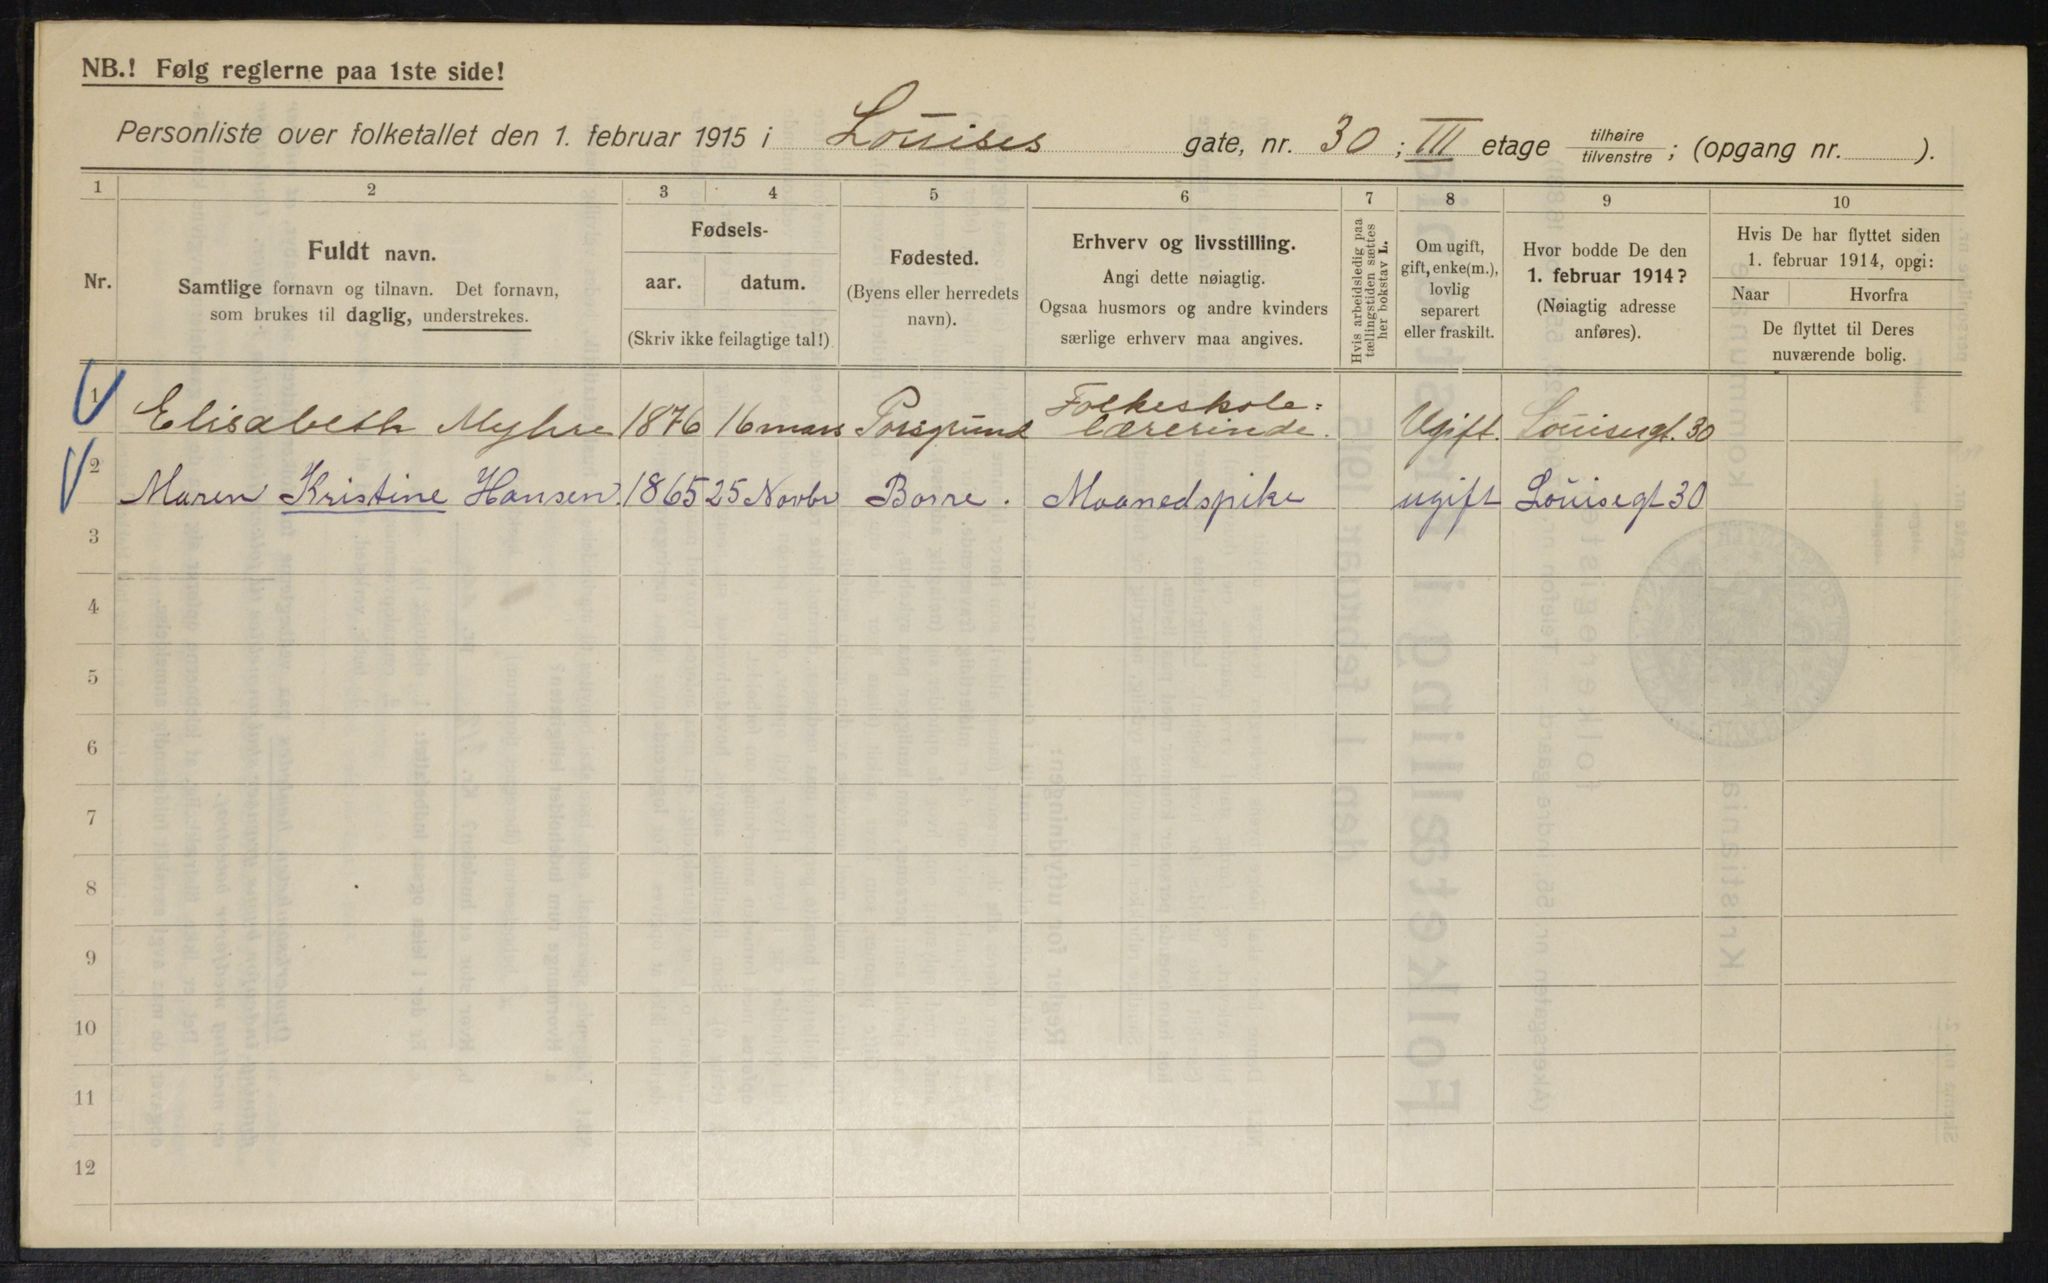 NB.! Følg reglerne paa 1ste side!
Personliste over folketallet den 1. februar 1915 i Louises gate, nr. 30 ; III etage tilhøire tilvenstre ; (opgang nr. ).
1 2 3 4 5 6 7 8 9 10
Nr.
Fuldt navn.
Samtlige fornavn og tilnavn. Det fornavn,
som brukes til daglig, understrekes.
Fødsels-
aar. datum.
(Skriv ikke feilagtige tal!)
Fødested.
(Byens eller herredets
navn).
Erhverv og livsstilling.
Angi dette nøiagtig.
Ogsaa husmors og andre kvinders
særlige erhverv maa angives.
Hvis arbeidsledig paa
tællingstiden sættes
her bokstav L.
Om ugift,
gift, enke(m.),
lovlig
separert
eller fraskilt.
Hvor bodde De den
1. februar 1914?
(Nøiagtig adresse
anføres).
Hvis De har flyttet siden
1. februar 1914, opgi:
Naar Hvorfra
De flyttet til Deres
nuværende bolig.
1 Elisabeth Myhre 1876 16 mars Porsgrund Folkeskole=
lærerinde. Ugift. Louisegt. 30
2 Maren Kristine Hansen. 1865 25 Novbr Borre. Maanedspike ugift Louisegt 30
3
4
5
6
7
8
9
10
11
12